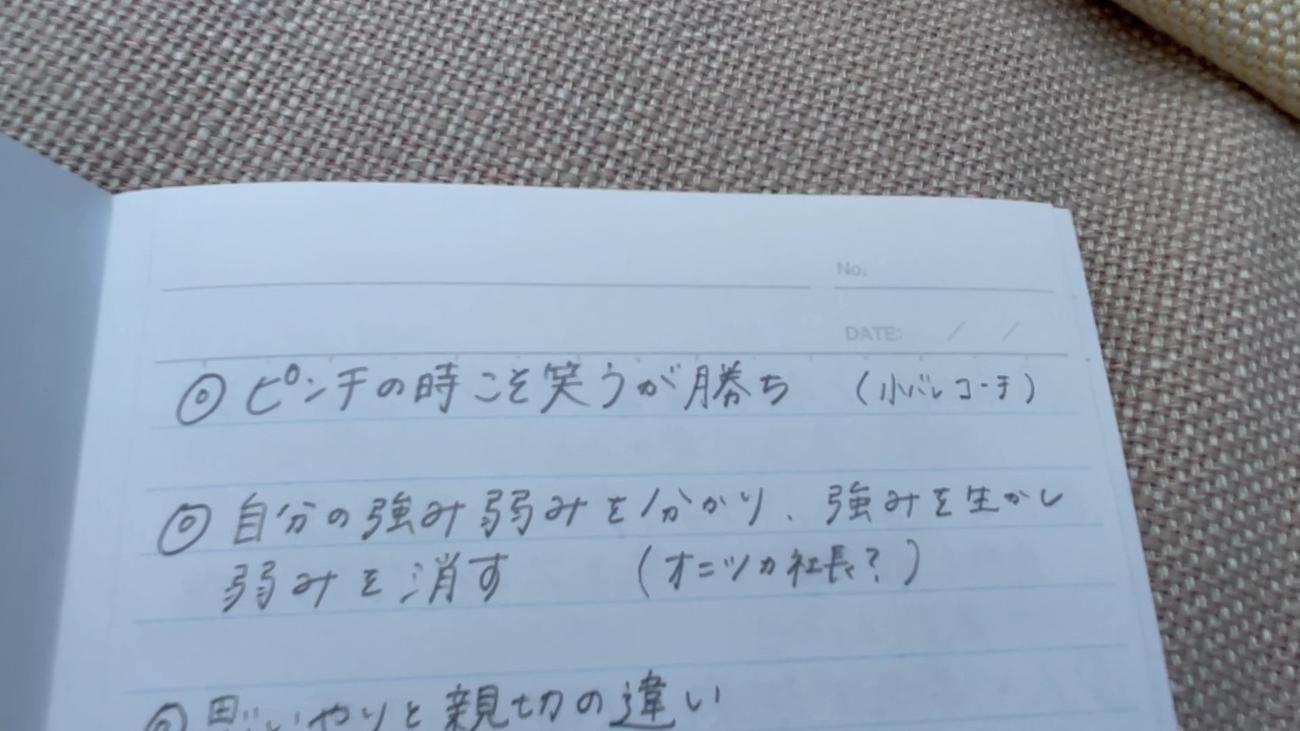 No.
DATE: / /
◎ ピンチの時こそ笑うが勝ち (小バレコーチ)
◎ 自分の強み弱みを分かり、強みを生かし
弱みを消す (オニツカ社長?)
◎ 思いやりと親切の違い